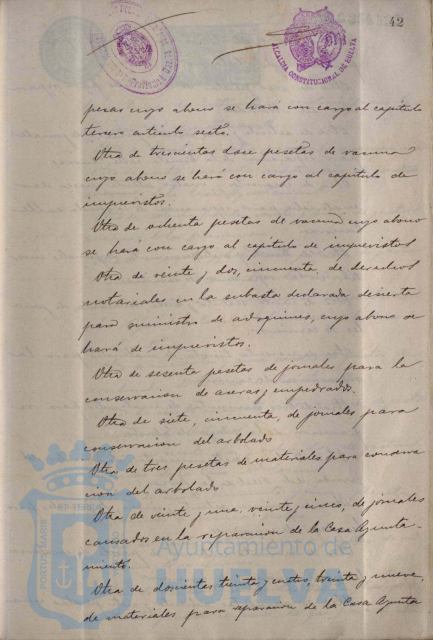 42
ALCALDIA CONSTITUCIONAL DE HUELVA
pesas cuyo abono se hará con cargo al capítulo
tercero artículo sesto.
Otra de trescientas doce pesetas de vacuna
cuyo abono se hará con cargo al capítulo de
imprevistos.
Otra de ochenta pesetas de vacuna cuyo abono
se hará con cargo al capítulo de imprevistos
Otra de veinte y dos, cincuenta, de derechos
notariales en la subasta declarada desierta
para suministro de adoquines, cuyo abono se
hará de imprevistos.
Otra de sesenta pesetas de jornales para la
conservacion de aceras y empedrados.
Otra de siete, cincuenta, de jornales para
conservacion del arbolado
Otra de tres pesetas de materiales para conserva
cion del arbolado
Otra de veinte y una, veinte y cinco, de jornales
causados en la reparacion de la Casa Ayunta-
miento.
Otra de doscientas treinta y cuatro, treinta y nueve,
de materiales para reparacion de la Casa Ayunta
Ayuntamiento de
HUELVA